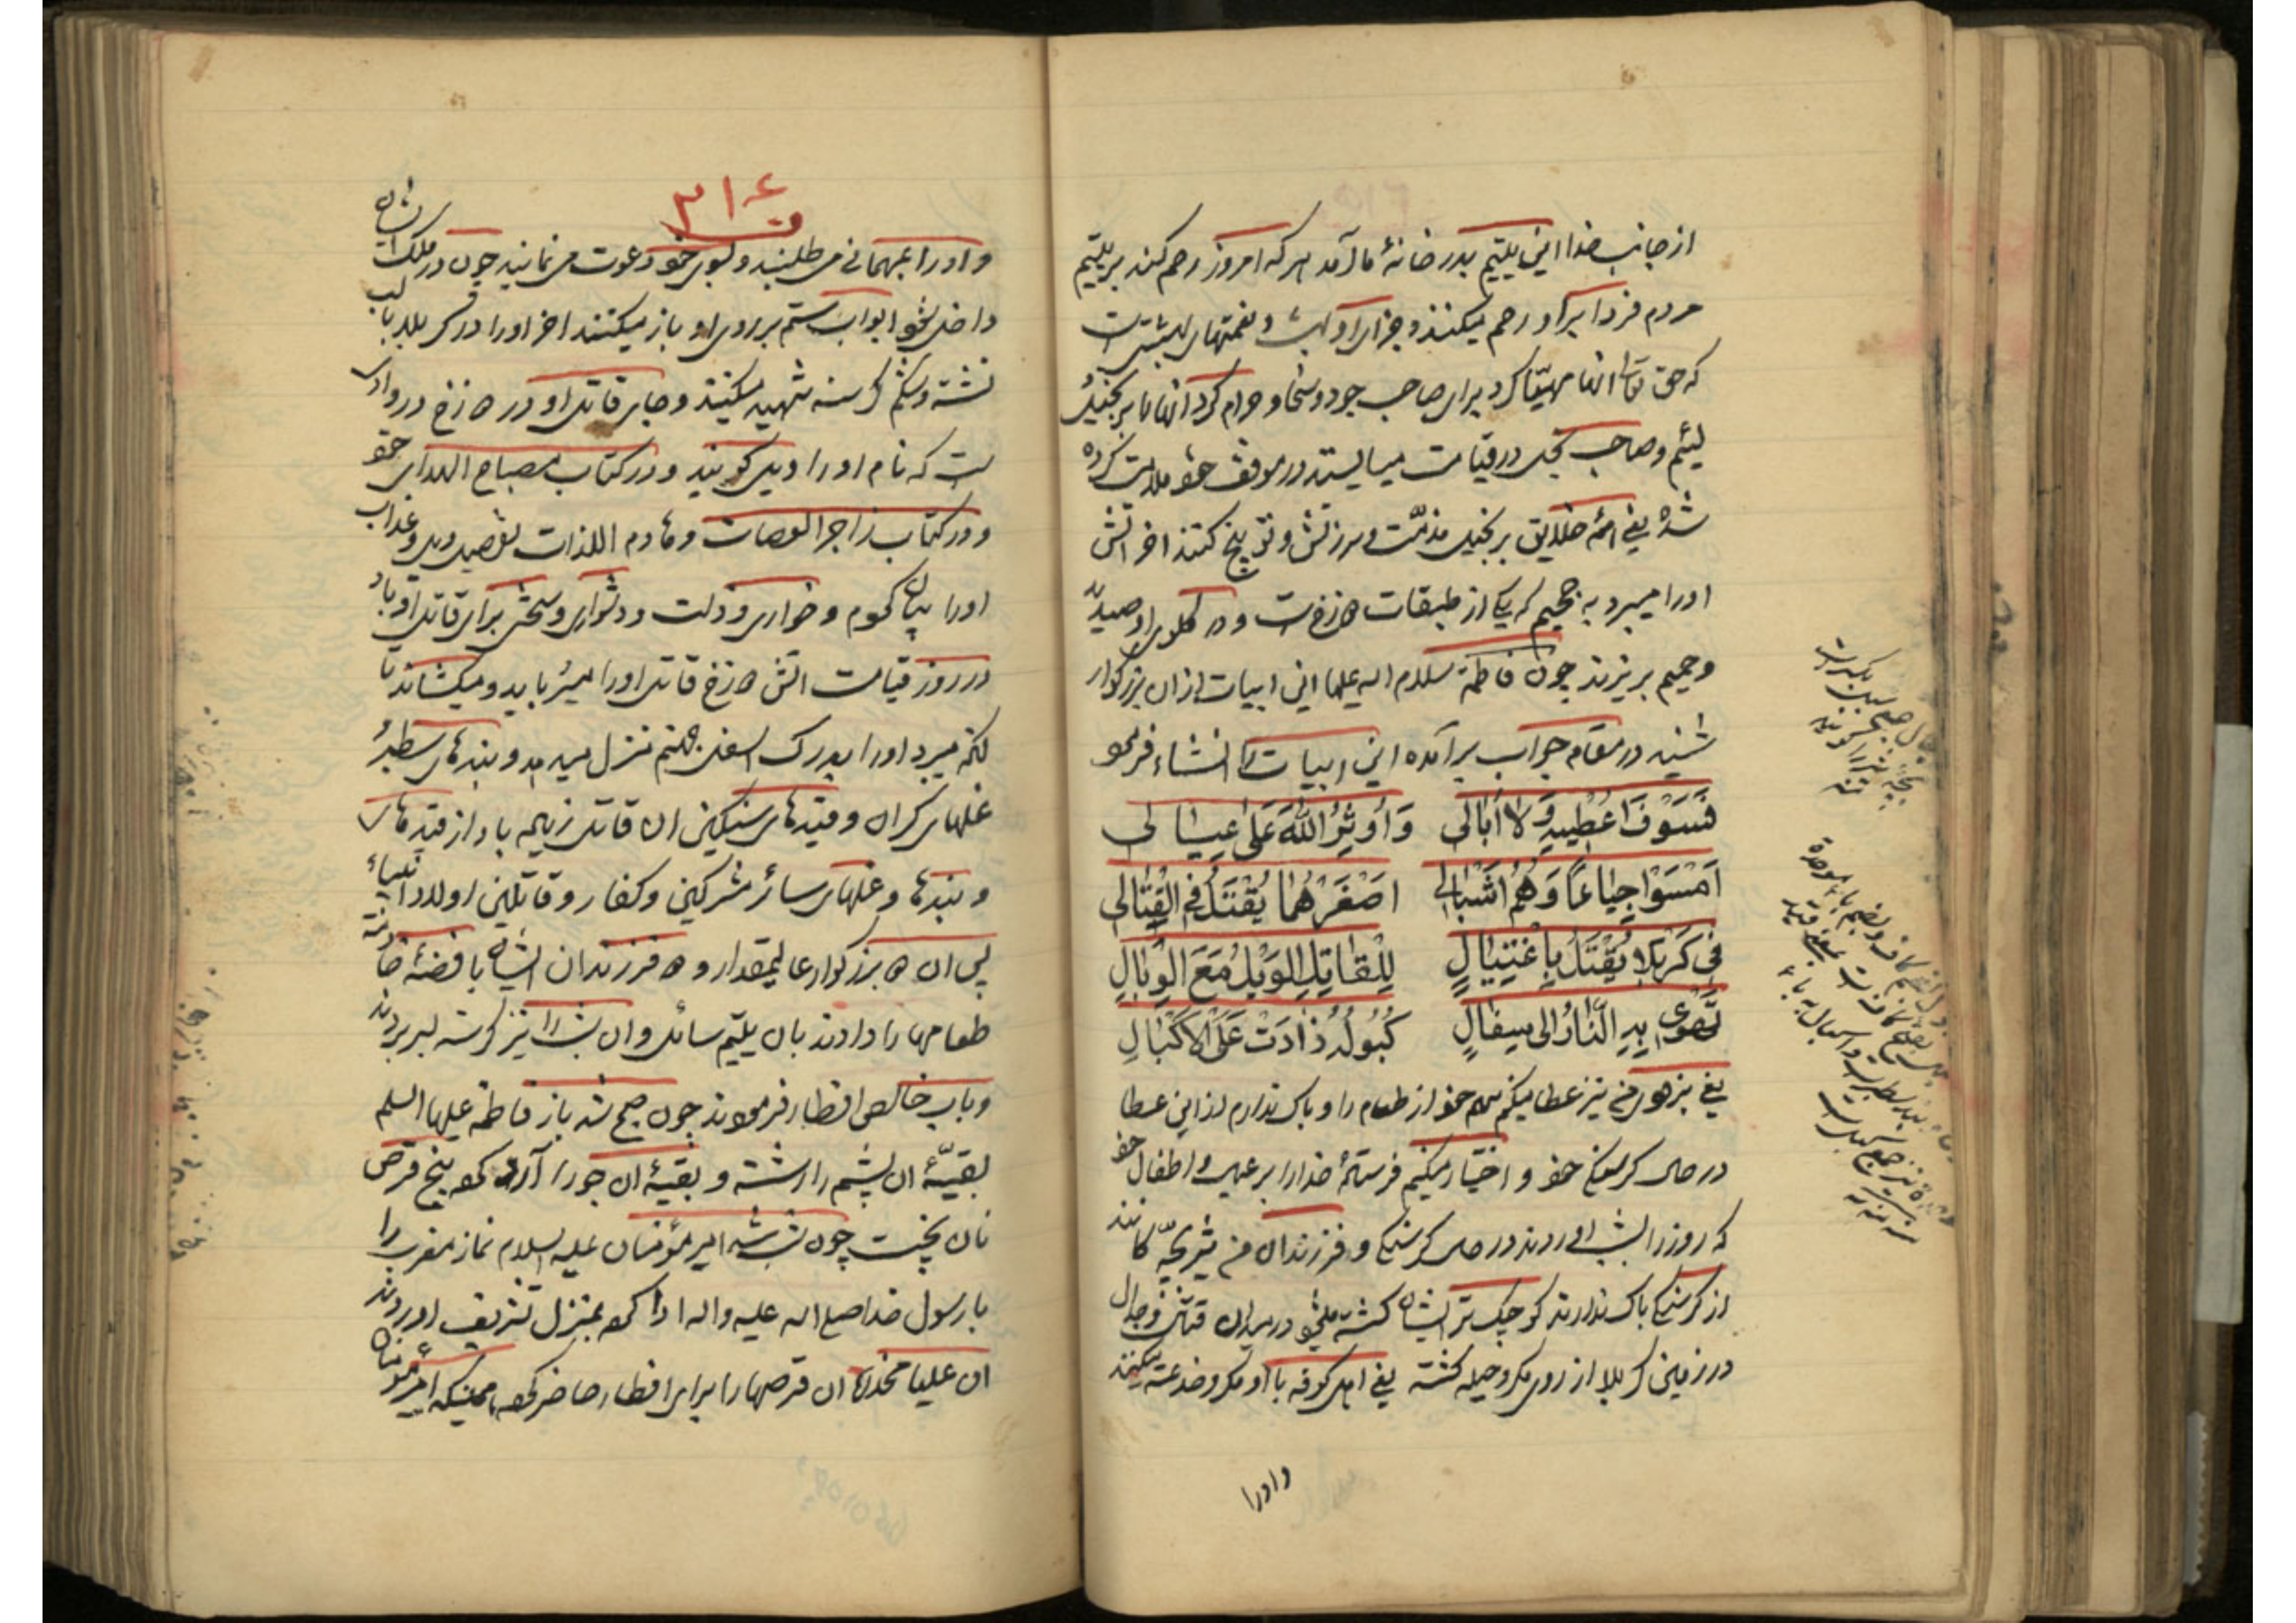 از جانب خدا این یتیم بدر خانهٔ ما آمد هر که امروز رحم کند بر یتیم
مردم فردا بر او رحم میکنند و جزای او بهشت و نعمتهای بهشتی است
که حق تعالی انها مهیّا کرد برای صاحب جود و سخا و حرام کرد انها را بر بخیل
لئیم و صاحب بخل در قیامت میایستد در موقف خود ملامت کرده
شده یعنی همه خلایق بر بخیل مذمّت و سرزنش و توبیخ کنند اخر اتش
اورا میبرد به جحیم که یکی از طبقات دوزخ است و در گلوی او صدید
و حمیم بریزند چون فاطمة سلام الله علیها این ابیات از ان بزرگوار
شنید در مقام جواب برآمده این ابیات را انشاء فرمود
فَسَوْفَ اُعْطِیهِ وَلا اُبالی وَاُوثِرُ اللّٰهَ عَلی عِیالی
اَمْسَوْا جِیاعًا وَهُمْ اَشْبالی اَصْغَرُهُما یُقْتَلُ فِی الْقِتالی
فی کَرْبَلا یُقْتَلُ بِاغْتِیالٍ لِلْقاتِلِ الْوَیْلُ مَعَ الْوَبالِ
تَهْوی بِهِ النّارُ اِلی سِفالٍ کُبُولُهُ زادَتْ عَلَی الْاَکْبالِ
یعنی بزودی من نیز عطا میکنم سهم خود از طعام را و باک ندارم از این عطا
در حال گرسنگی خود و اختیار میکنم فرستهٔ خدا را بر عیال و اطفال خود
که روز را بشب اوردند در حال گرسنگی و فرزندان من شیربچّه کانند
از گرسنگی باک ندارند کوچک تر ایشان کشته میشود در میدان قتال و جدال
در زمین کربلا از روی مکر و حیله کشته یعنی اهل کوفه با او مکر و خدعه میکنند
واورا
۳۱۶
واورا بمهمانی می طلبند و بسوی خود دعوت می نمایند چون در ملک ایشان
داخل شود ابواب ستم بر روی او باز میکنند اخر اورا در کربلا با لب
تشنه و شکم گرسنه شهید میکنند و جای قاتل او در دوزخ در وادی
است که نام او را ویل گویند و در کتاب مصباح الهدای خود
و در کتاب زاجر العصات و هادم اللذات تفصیل ویل و عذاب
اورا بیان کردم و خواری و ذلت و دشواری و سختی برای قاتل او باد
در روز قیامت اتش دوزخ قاتل اورا میرباید و میکشاند تا
انکه میبرد اورا بدرک اسفل جهنم منزل میدهد و بندهای سطبر
غلهای گران و قیدهای سنگین ان قاتل زیاده باد از قیدهای
و بندها و غلهای سائر مشرکین و کفار و قاتلین اولاد انبیاء
پس ان دو بزرگوار عالیمقدار و دو فرزندان ایشان با فضهٔ خادمه
طعامها را دادند بان یتیم سائل و ان شب را نیز گرسنه بسر بردند
و باب خالص افطار فرمودند چون صبح شد باز فاطمه علیها السلم
بقیّهٔ ان پشم را رشته و بقیهٔ ان جو را آرد کرده پنج قرص
نان پخت چون شب شد امیر مؤمنان علیه السلام نماز مغرب را
با رسول خدا صلی الله علیه واله ادا کرده بمنزل تشریف اوردند
ان علیا مخدره ان قرصها را برای افطار حاضر کرده همینکه امیر مؤمنان